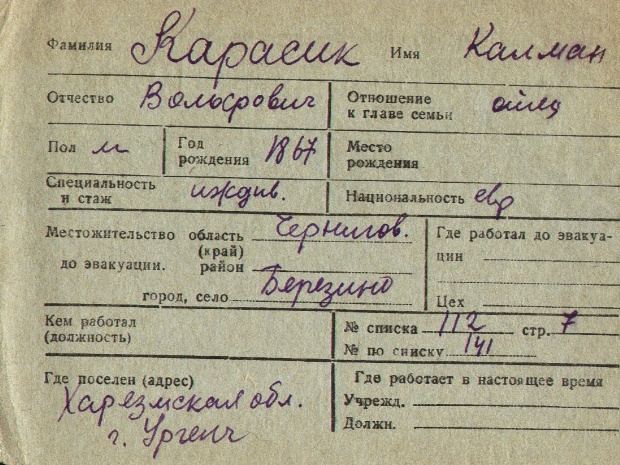 Фамилия Карасик Имя Калман
Отчество Вольфович Отношение к главе семьи отец
Пол м Год рождения 1867 Место рождения
Специальность и стаж иждив. Национальность евр
Местожительство область Чернигов. Где работал до эвакуа-
(край) ции
до эвакуации. район
город, село Березино Цех
Кем работал № списка 112 стр. 7
(должность) № по списку 141
Где поселен (адрес) Где работает в настоящее время
Харезмская обл. Учрежд.
г. Ургенч Должн.